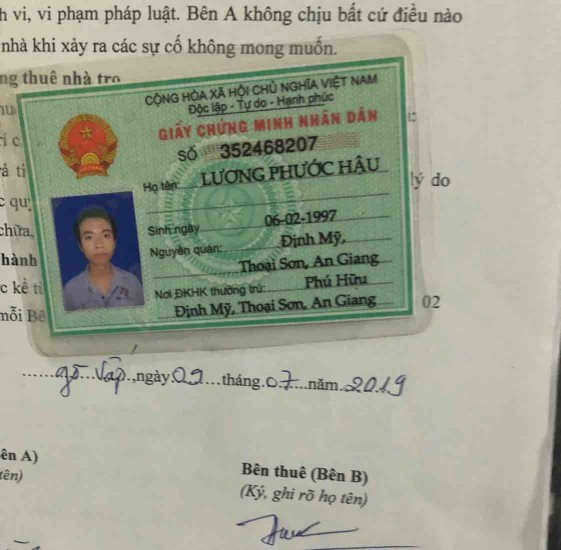 h vi, vi phạm pháp luật. Bên A không chịu bất cứ điều nào
nhà khi xảy ra các sự cố không mong muốn.
ng thuê nhà trọ
CỘNG HÒA XÃ HỘI CHỦ NGHĨA VIỆT NAM
Độc lập - Tự do - Hạnh phúc
GIẤY CHỨNG MINH NHÂN DÂN
SỐ 352468207
Họ tên: LƯƠNG PHƯỚC HẬU
lý do
Sinh ngày 06-02-1997
chữa,
Nguyên quán: Định Mỹ,
hành
Thoại Sơn, An Giang
c kể từ
Nơi ĐKHK thường trú: Phú Hữu
Định Mỹ, Thoại Sơn, An Giang
mỗi Bê
02
gò Vấp, ngày 09 tháng 07 năm 2019
ên A)
tên)
Bên thuê (Bên B)
(Ký, ghi rõ họ tên)